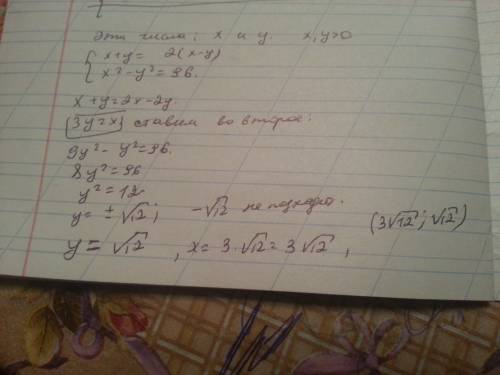 Эти числа: x и y. x,y>0
{ x+y= 2(x-y)
x²-y²=96.
x+y=2x-2y.
3y=x ставим во второе:
9y²-y²=96.
8y²=96
y²=12
y=±√12; -√12 не подходит.
(3√12; √12)
y=√12, x=3·√12=3√12,